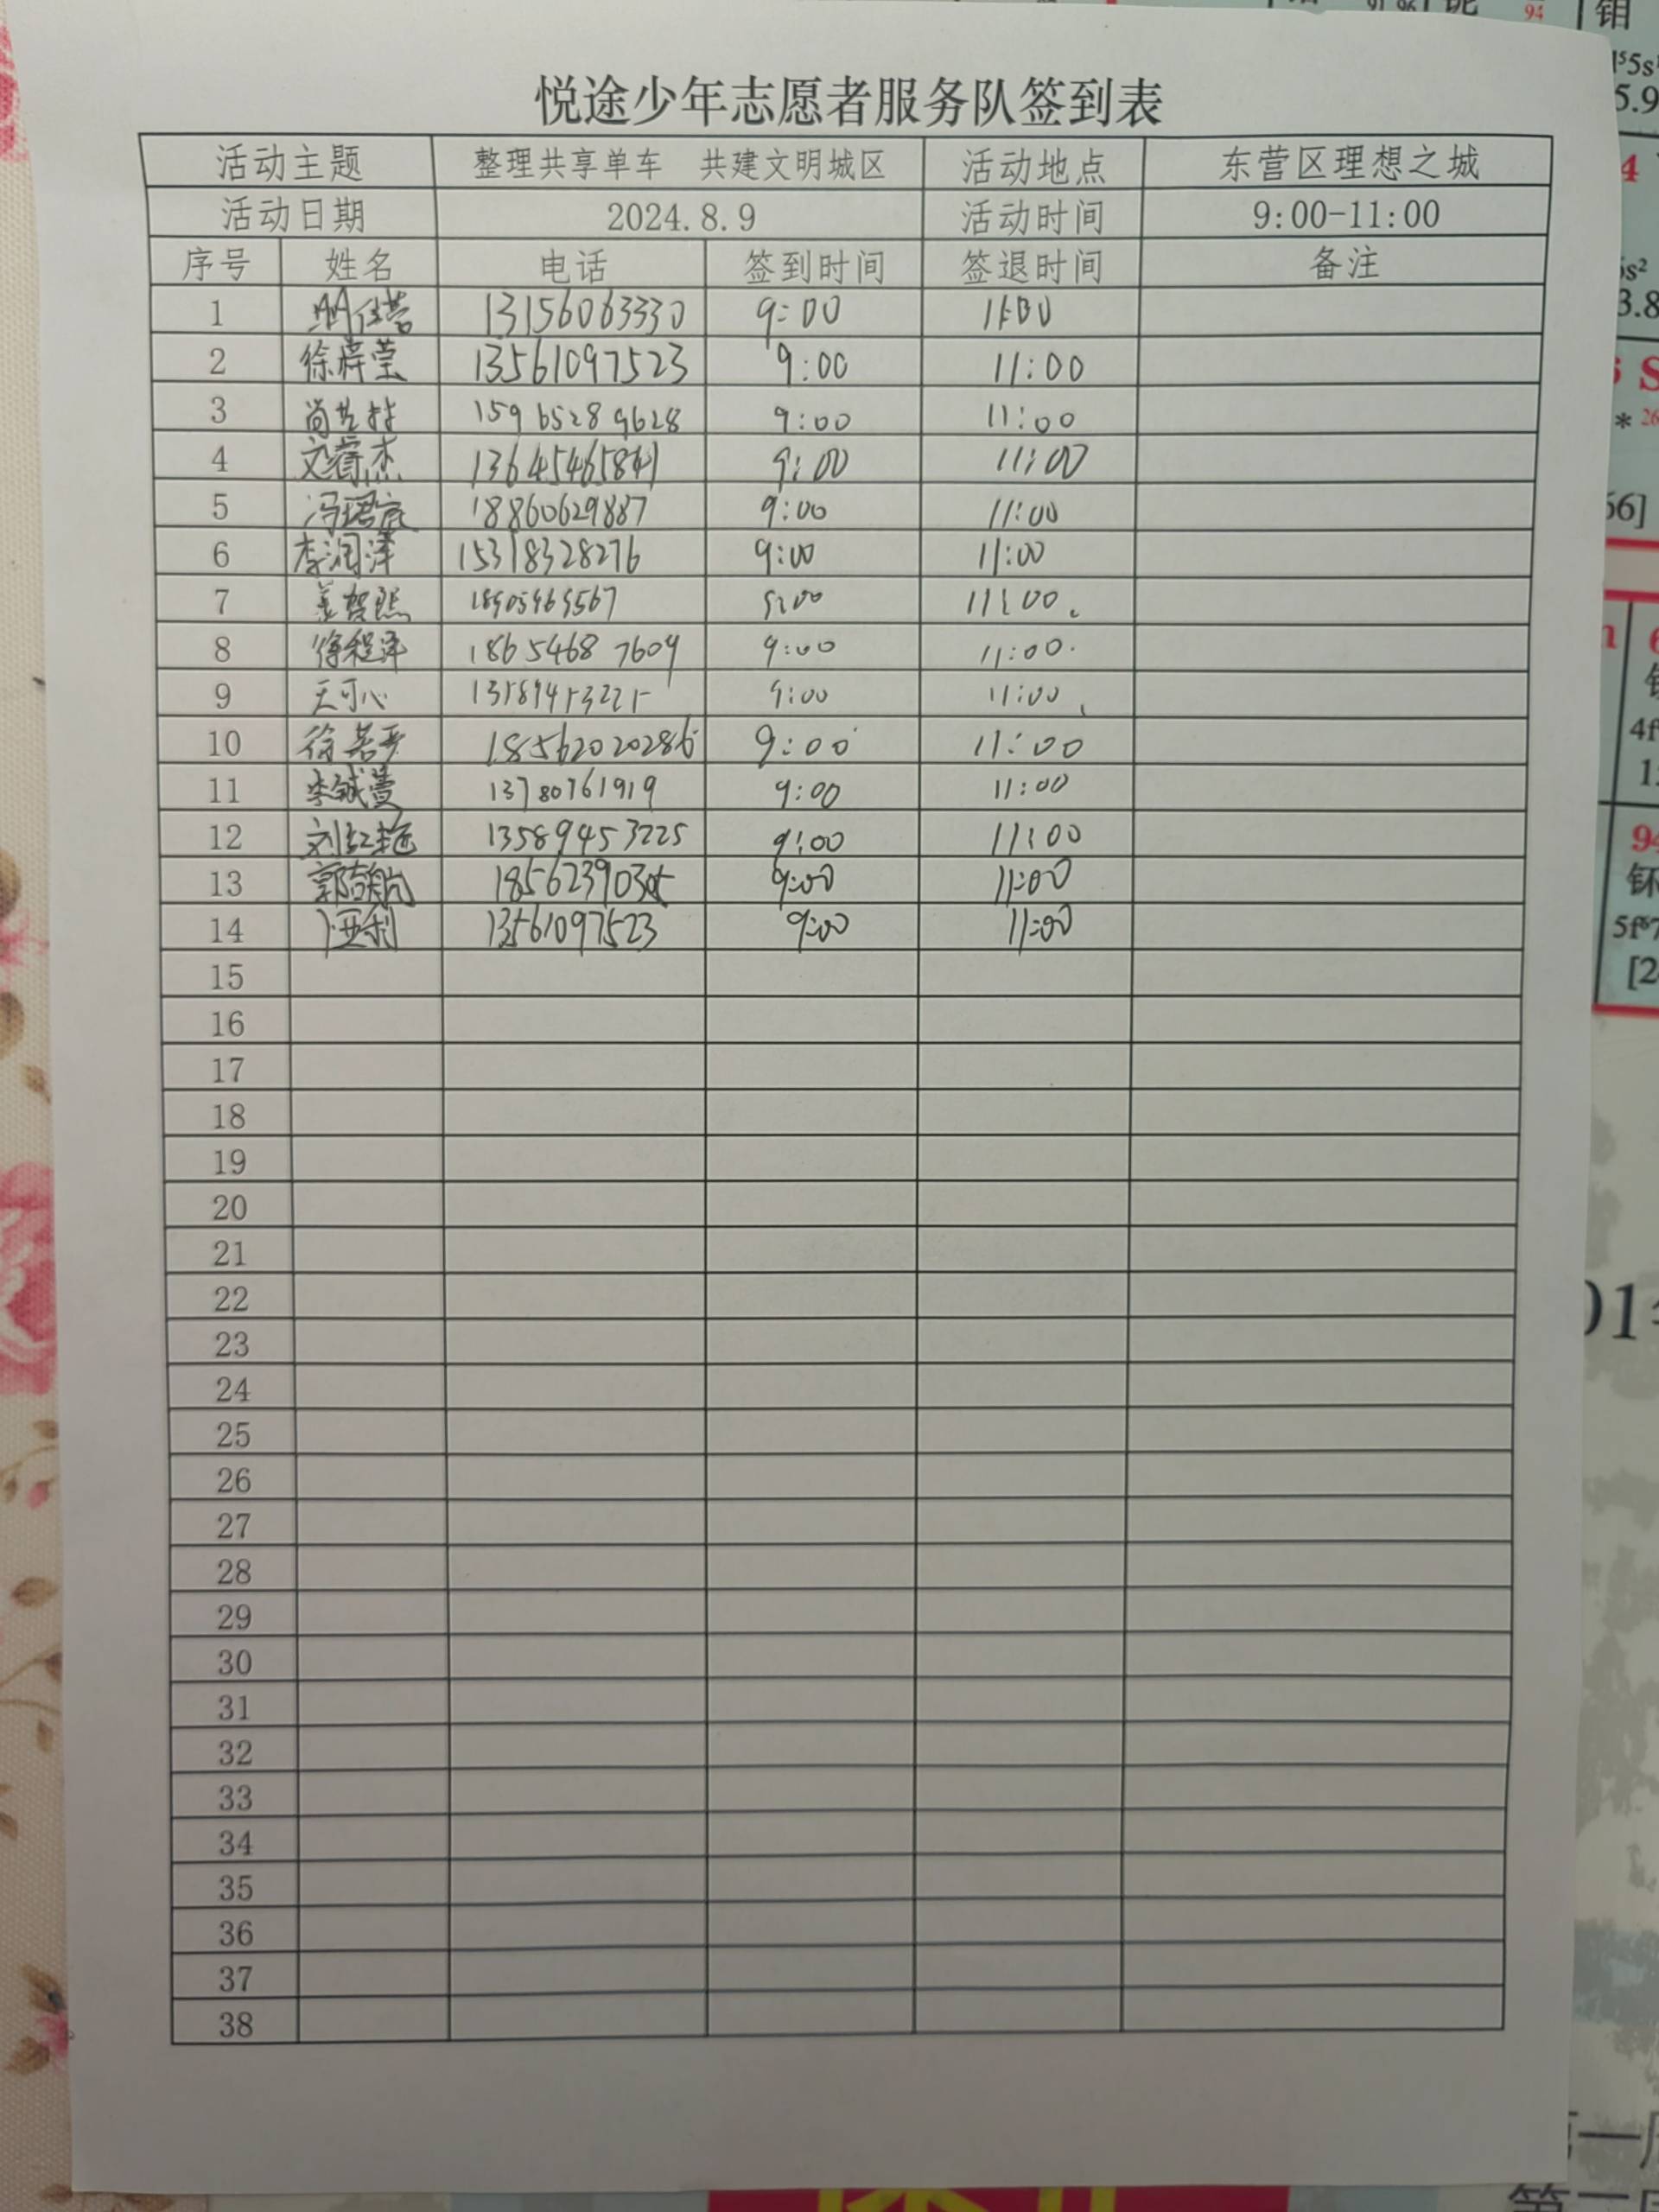 悦途少年志愿者服务队签到表
活动主题 整理共享单车 共建文明城区 活动地点 东营区理想之城
活动日期 2024.8.9 活动时间 9:00-11:00
序号 姓名 电话 签到时间 签退时间 备注
1 13156063330 9:00 11:00
2 徐梓莹 13561097523 9:00 11:00
3 15965289628 9:00 11:00
4 文睿杰 9:00 11:00
5 18860629887 9:00 11:00
6 李润泽 15318328276 9:00 11:00
7 姜贺熙 9:00 11:00.
8 徐程泽 18654687609 9:00 11:00.
9 王可心 9:00 11:00
10 18562020286 9:00 11:00
11 13780761919 9:00 11:00
12 13589453225 9:00 11:00
13 郭奇航 9:00 11:00
14 13561097523 9:00 11:00
15
16
17
18
19
20
21
22
23
24
25
26
27
28
29
30
31
32
33
34
35
36
37
38